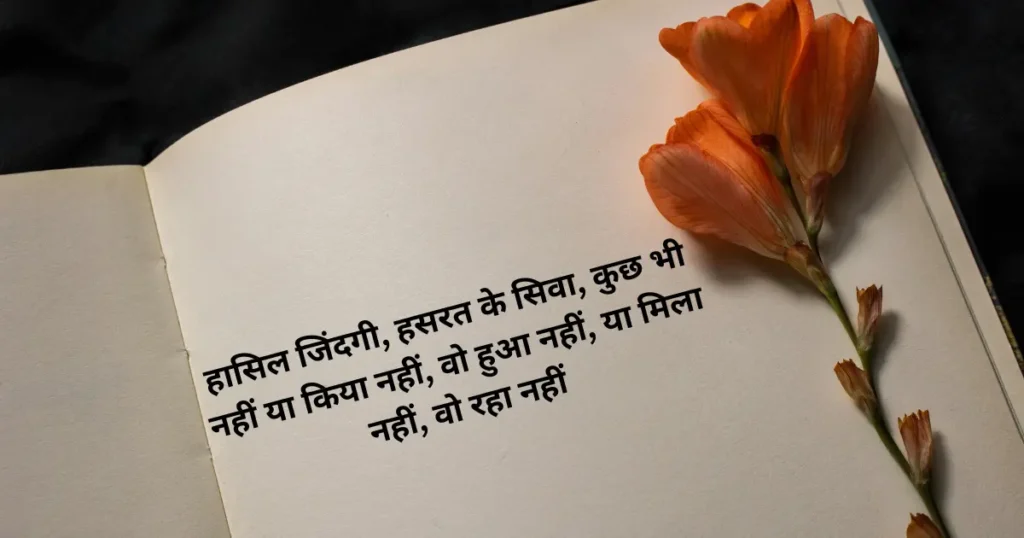 हासिल जिंदगी, हसरत के सिवा, कुछ भी
नहीं या किया नहीं, वो हुआ नहीं, या मिला
नहीं, वो रहा नहीं